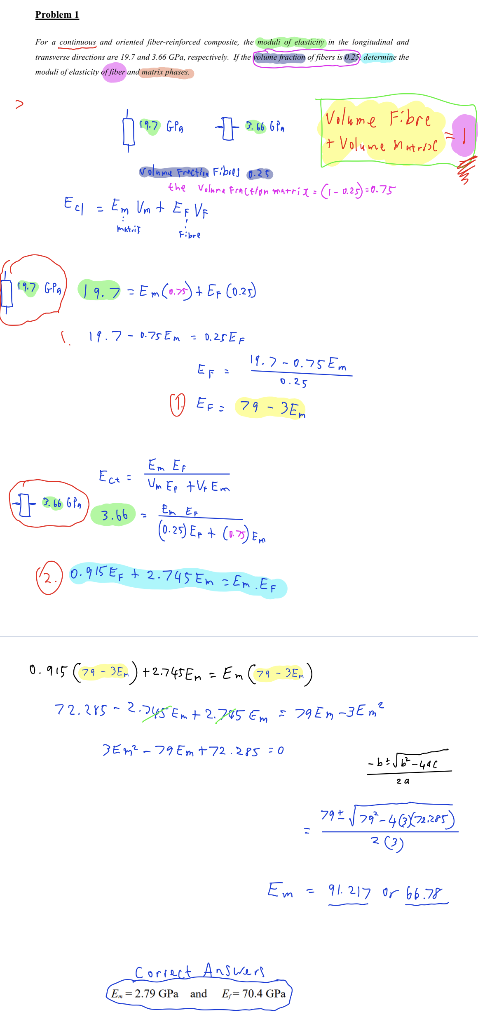 Problem 1
For a continuous and oriented fiber-reinforced composite, the moduli of elasticity in the longitudinal and
transverse directions are 19.7 and 3.66 GPa, respectively. If the volume fraction of fibers is 0.25, determine the
moduli of elasticity of fiber and matrix phases.
>
19.7 GPa
3.66 GPa
Volume Fibre
+ Volume Matrix = 1
Volume Fraction Fibres 0.25
the Volume Fraction matrix = (1 - 0.25) = 0.75
Ecl = Em Vm + EF VF
matrix
Fibre
19.7 GPa
19.7 = Em(0.75) + EF (0.25)
1. 19.7 - 0.75 Em = 0.25 EF
EF = 19.7 - 0.75 Em / 0.25
1. EF = 79 - 3Em
3.66 GPa
Ect = Em EF / Vm EF + VF Em
3.66 = Em EF / (0.25) EF + (0.75) Em
2. 0.915 EF + 2.745 Em = Em . EF
0.915 (79 - 3Em) + 2.745 Em = Em (79 - 3Em)
72.285 - 2.745 Em + 2.745 Em = 79 Em - 3Em²
3Em² - 79 Em + 72.285 = 0
-b ± √b² - 4ac / 2a
= 79 ± √79² - 4(3)(72.285) / 2(3)
Em = 91.217 or 66.78
Correct Answers
Em = 2.79 GPa and Ef = 70.4 GPa